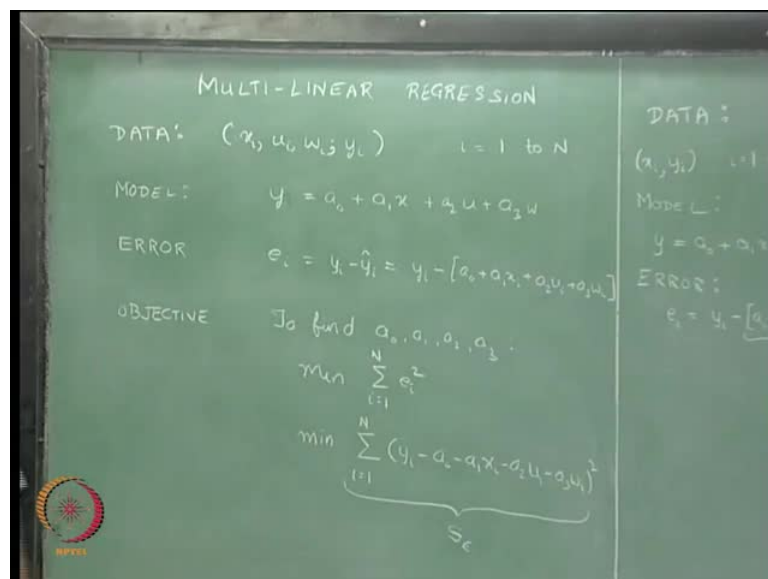 MULTI-LINEAR REGRESSION
DATA: (xᵢ, uᵢ, wᵢ; yᵢ) i = 1 to N
MODEL: y = a₀ + a₁x + a₂u + a₃w
ERROR eᵢ = yᵢ - ŷᵢ = yᵢ - [a₀ + a₁xᵢ + a₂uᵢ + a₃wᵢ]
OBJECTIVE To find a₀, a₁, a₂, a₃.
Min ∑ᵢ₌₁ᴺ eᵢ²
min ∑ᵢ₌₁ᴺ (yᵢ - a₀ - a₁xᵢ - a₂uᵢ - a₃wᵢ)²
Sₑ
DATA:
(xᵢ, yᵢ) i = 1
MODEL:
y = a₀ + a₁x
ERROR:
eᵢ = yᵢ - [a₀
NPTEL